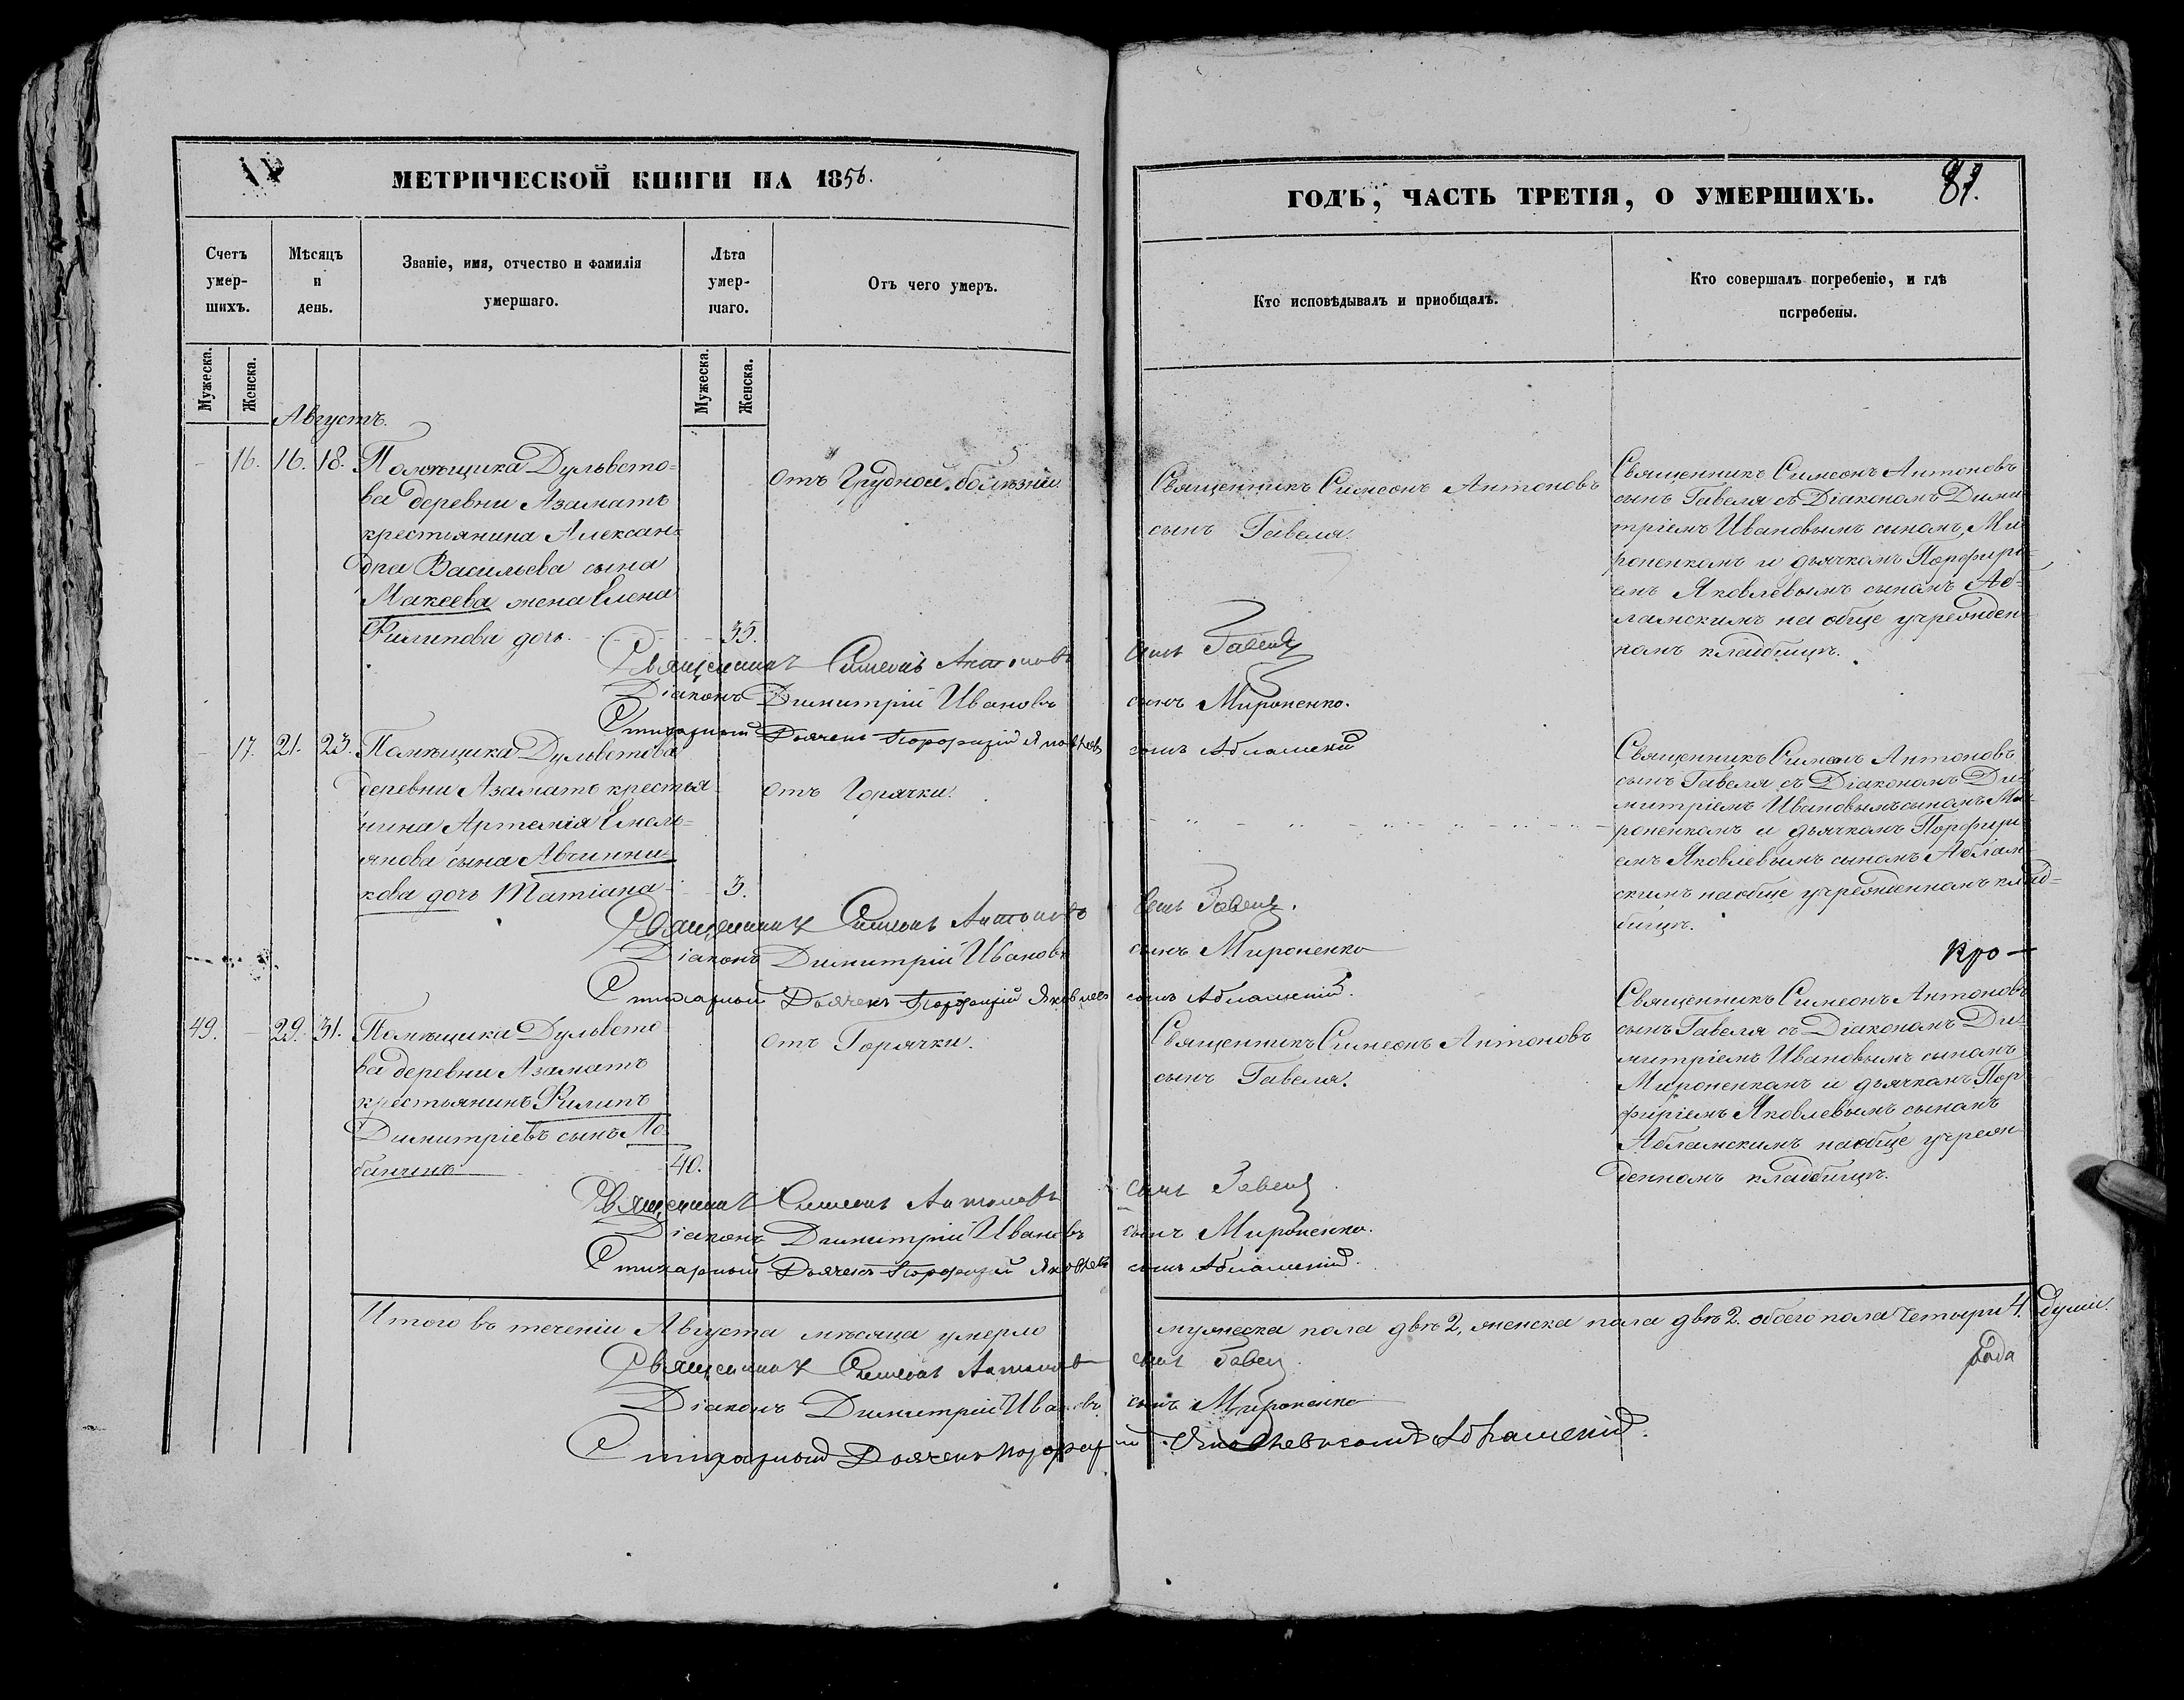 МЕТРИЧЕСКОЙ КНИГИ НА 1856.
ГОДЪ, ЧАСТЬ ТРЕТІЯ, О УМЕРШИХЪ.
Счетъ умер-
шихъ.
Мѣсяцъ
и
день.
Званіе, имя, отчество и фамилія
умершаго.
Лѣта
умер-
шаго.
Отъ чего умеръ.
Кто исповѣдывалъ и приобщалъ.
Кто совершалъ погребеніе, и гдѣ
погребены.
Мужеска.
Женска.
Мужеска.
Женска.
Августъ.
16. 16. 18.
Помѣщика Дульвето-
ва деревни Азаматъ
крестьянина Алексан-
дра Васильева сына
Макеева жена Елена
Филипова дочь. 35.
отъ Грудной болѣзни
Священникъ Симеонъ Антоновъ
сынъ Гавеля.
Священникъ Симеонъ Антоновъ
сынъ Гавеля съ Діакономъ Дими-
тріемъ Ивановымъ сыномъ, Ми-
роненкомъ и дьячкомъ Порфирі-
емъ Яковлевымъ сыномъ Аб-
ламскимъ на обще учрежден-
номъ кладбищѣ.
Священникъ Симеонъ Антоновъ сынъ Гавеля
Діаконъ Димитрій Ивановъ сынъ Мироненко.
Стихарный Дьячекъ Порфирій Яковлевъ сынъ Абламскій
17. 21. 23.
Помѣщика Дульветова
деревни Азаматъ крестья-
нина Артемія Емель-
янова сына Авчинни-
кова дочь Татіана 3.
отъ Горячки.
Священникъ Симеонъ Антоновъ
сынъ Гавеля съ Діакономъ Ди-
митріемъ Ивановымъ сыномъ Ми-
роненкомъ и дьячкомъ Порфирі-
емъ Яковлевымъ сыномъ Аблам-
скимъ на обще учрежденномъ клад-
бищѣ.
Священникъ Симеонъ Антоновъ сынъ Гавеля.
Діаконъ Димитрій Ивановъ сынъ Мироненко
Стихарный Дьячекъ Порфирій Яковлевъ сынъ Абламскій.
Кро-
49. 29. 31.
Помѣщика Дульвето-
ва деревни Азаматъ
крестьянинъ Филипъ
Димитріевъ сынъ Ло-
банчинъ 40.
отъ Горячки.
Священникъ Симеонъ Антоновъ
сынъ Гавеля.
Священникъ Симеонъ Антоновъ
сынъ Гавеля съ Діакономъ Ди-
митріемъ Ивановымъ сыномъ
Мироненкомъ и дьячкомъ Пор-
фиріемъ Яковлевымъ сыномъ
Абламскимъ на обще учреж-
денномъ кладбищѣ.
Священникъ Симеонъ Антоновъ сынъ Гавеля.
Діаконъ Димитрій Ивановъ сынъ Мироненко.
Стихарный Дьячекъ Порфирій Яковлевъ сынъ Абламскій.
Итого въ теченіи Августа мѣсяца умерло мужеска пола двѣ 2, женска пола двѣ 2. обоего пола четыри 4. души.
Священникъ Симеонъ Антоновъ сынъ Гавеля
Діаконъ Димитрій Ивановъ сынъ Мироненко
Стихарный Дьячекъ Порфирій Яковлевъ сынъ Абламскій.